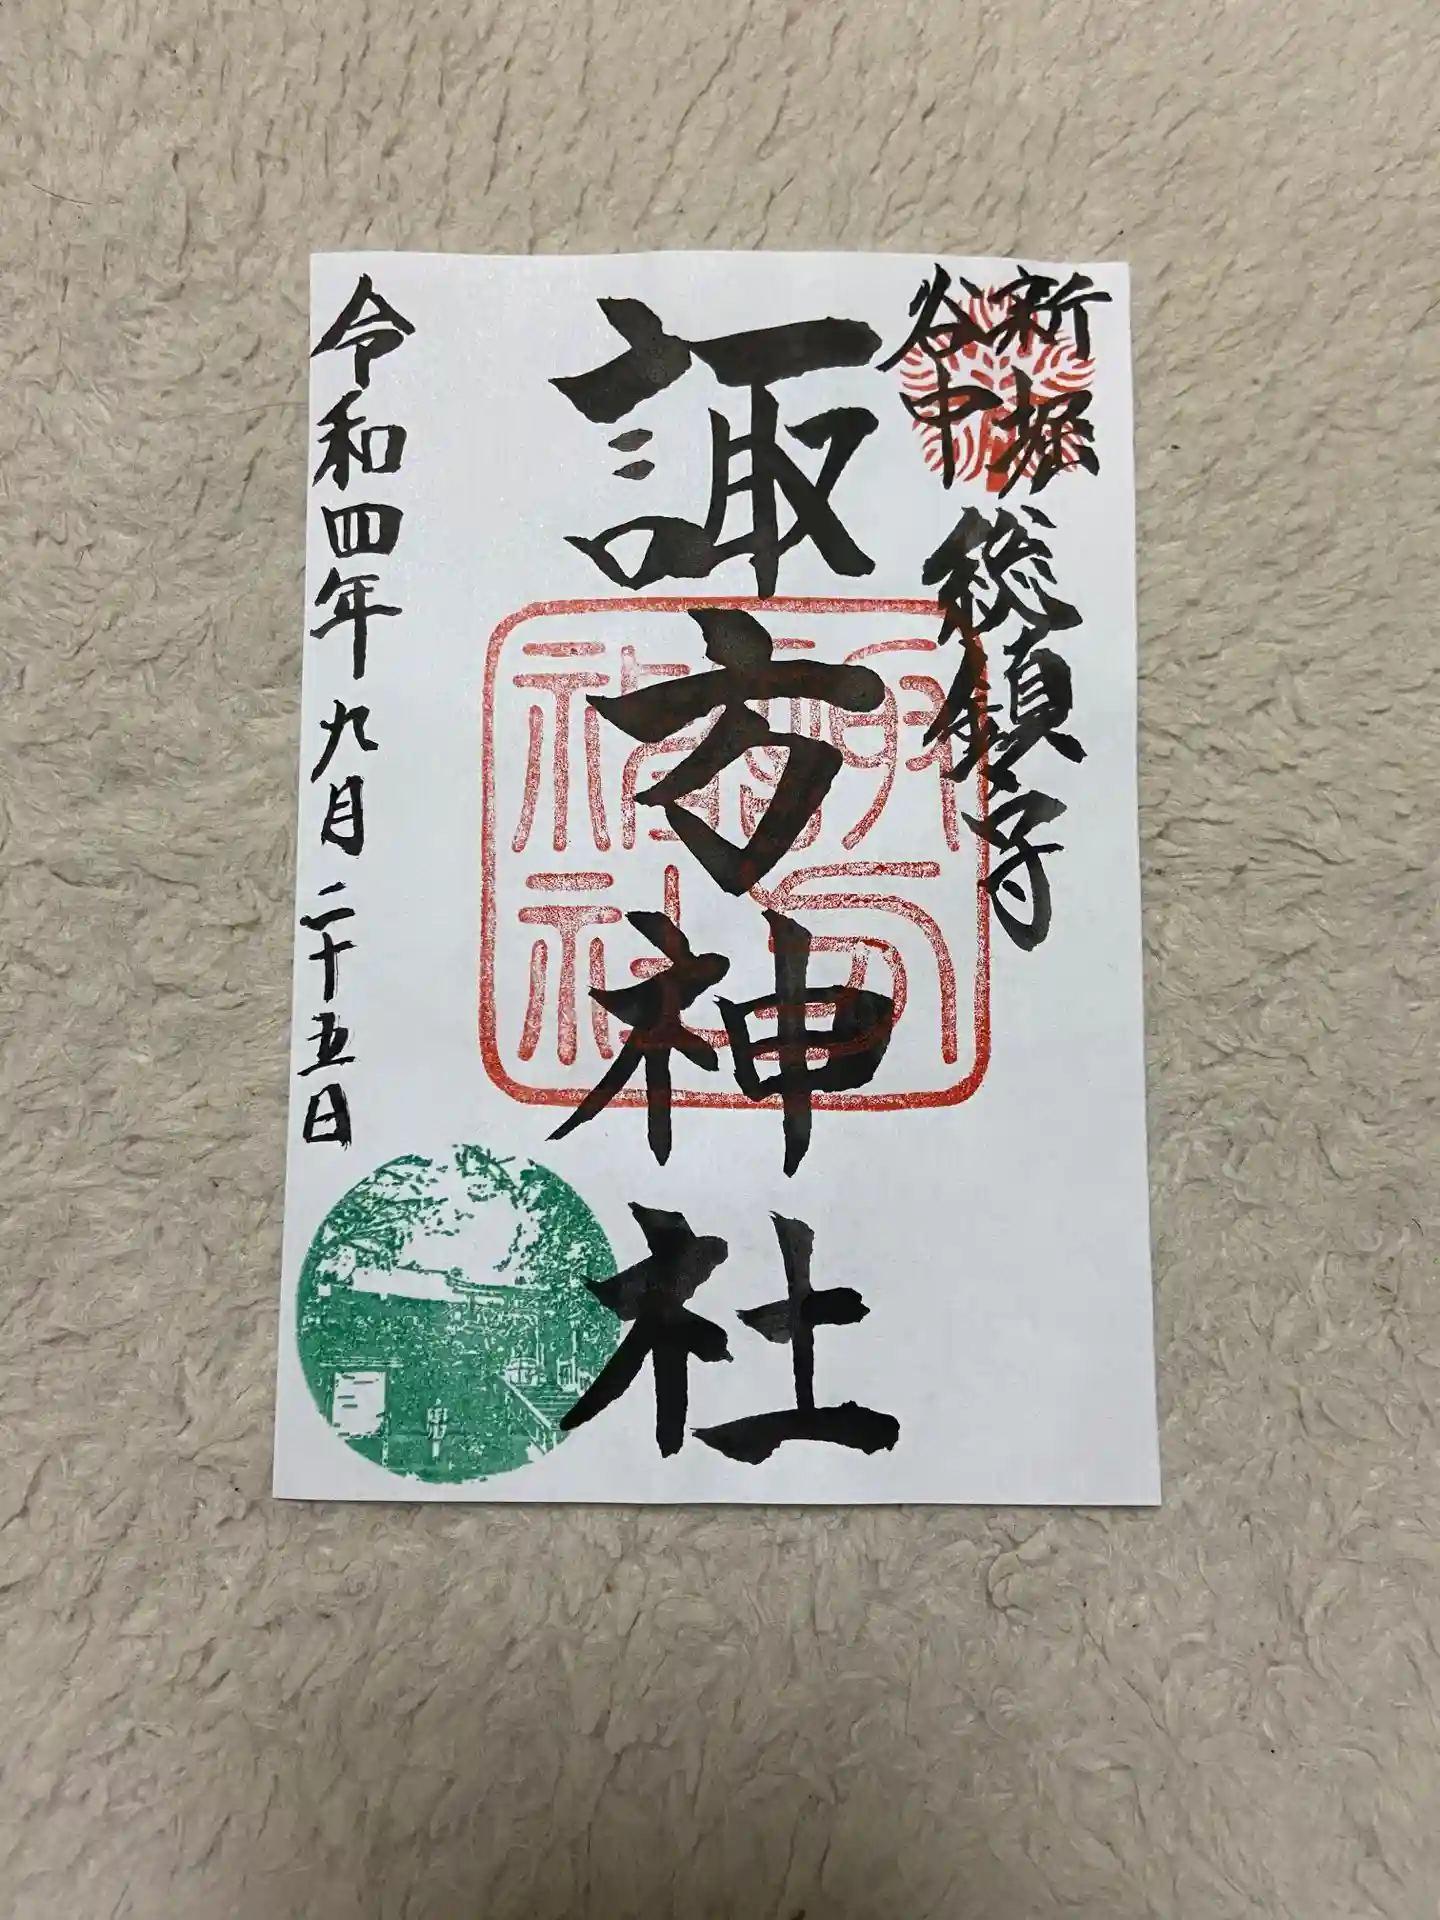 新堀
谷中
総鎮守
諏方神社
諏方
神社
令和四年九月二十五日